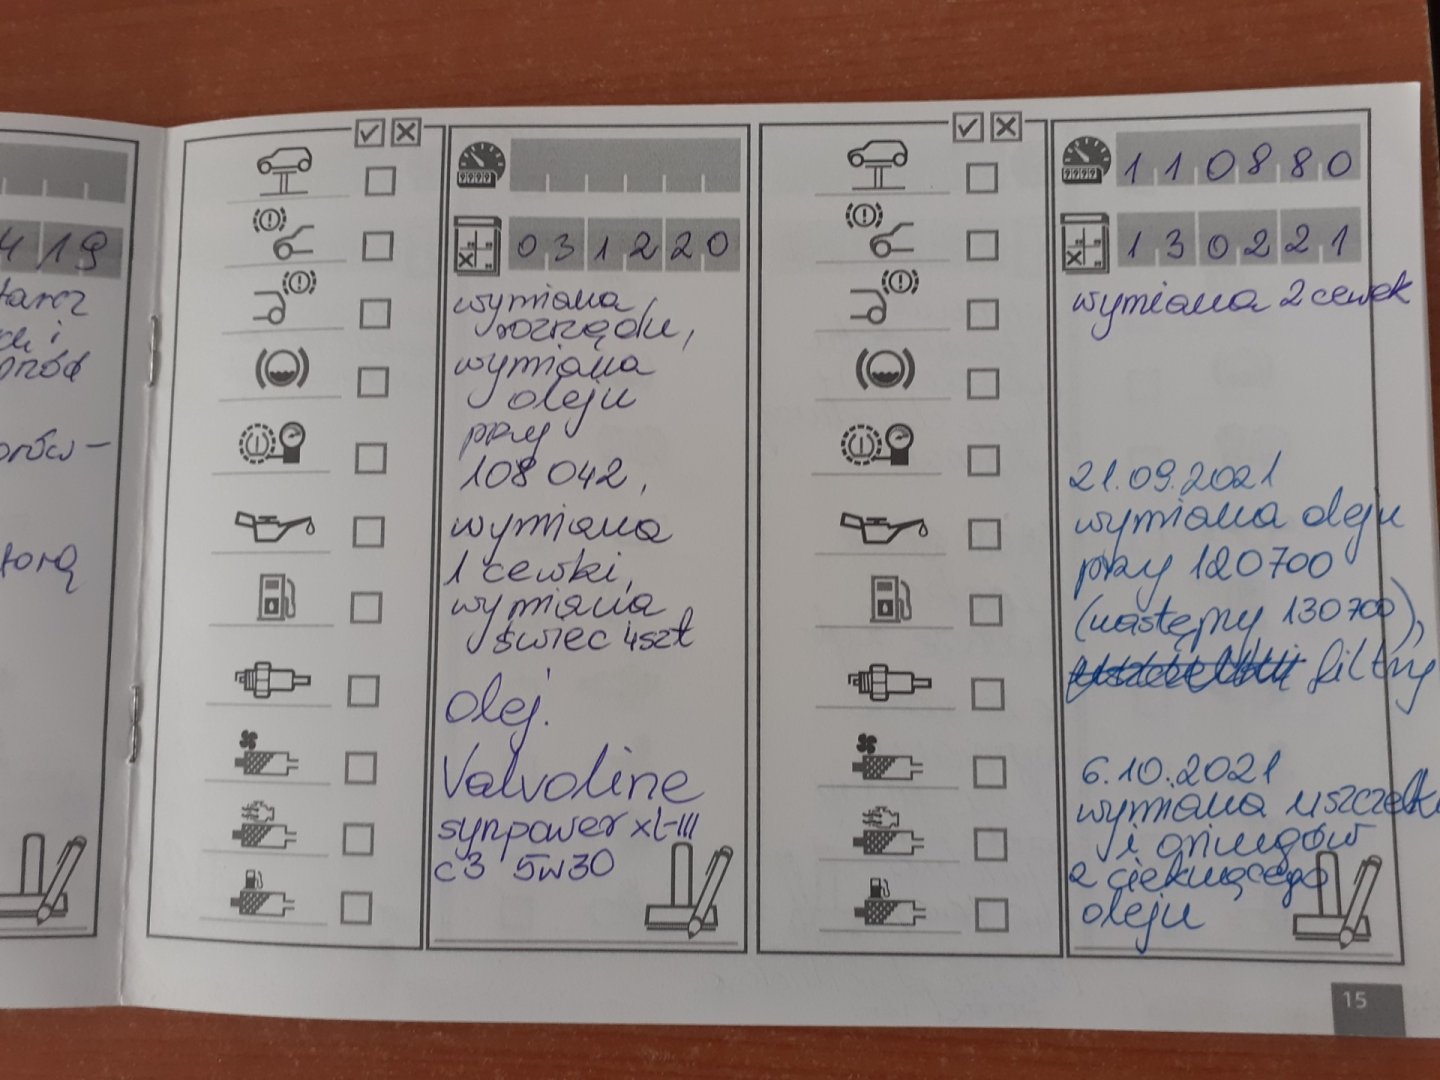 4 1 9
tarcz
i
orów-
torą
0 3 1 2 2 0
wymiana
rozrządu,
wymiana
oleju
przy
108 042,
wymiana
1 cewki,
wymiana
świec 4szt
olej.
Valvoline
synpower xl-III
c3 5w30
1 1 0 8 8 0
1 3 0 2 2 1
wymiana 2 cewek
21.09.2021
wymiana oleju
przy 120700
(następny 130700),
filtry
6.10.2021
wymiana uszczelki
i oringów
z cieknącego
oleju
15